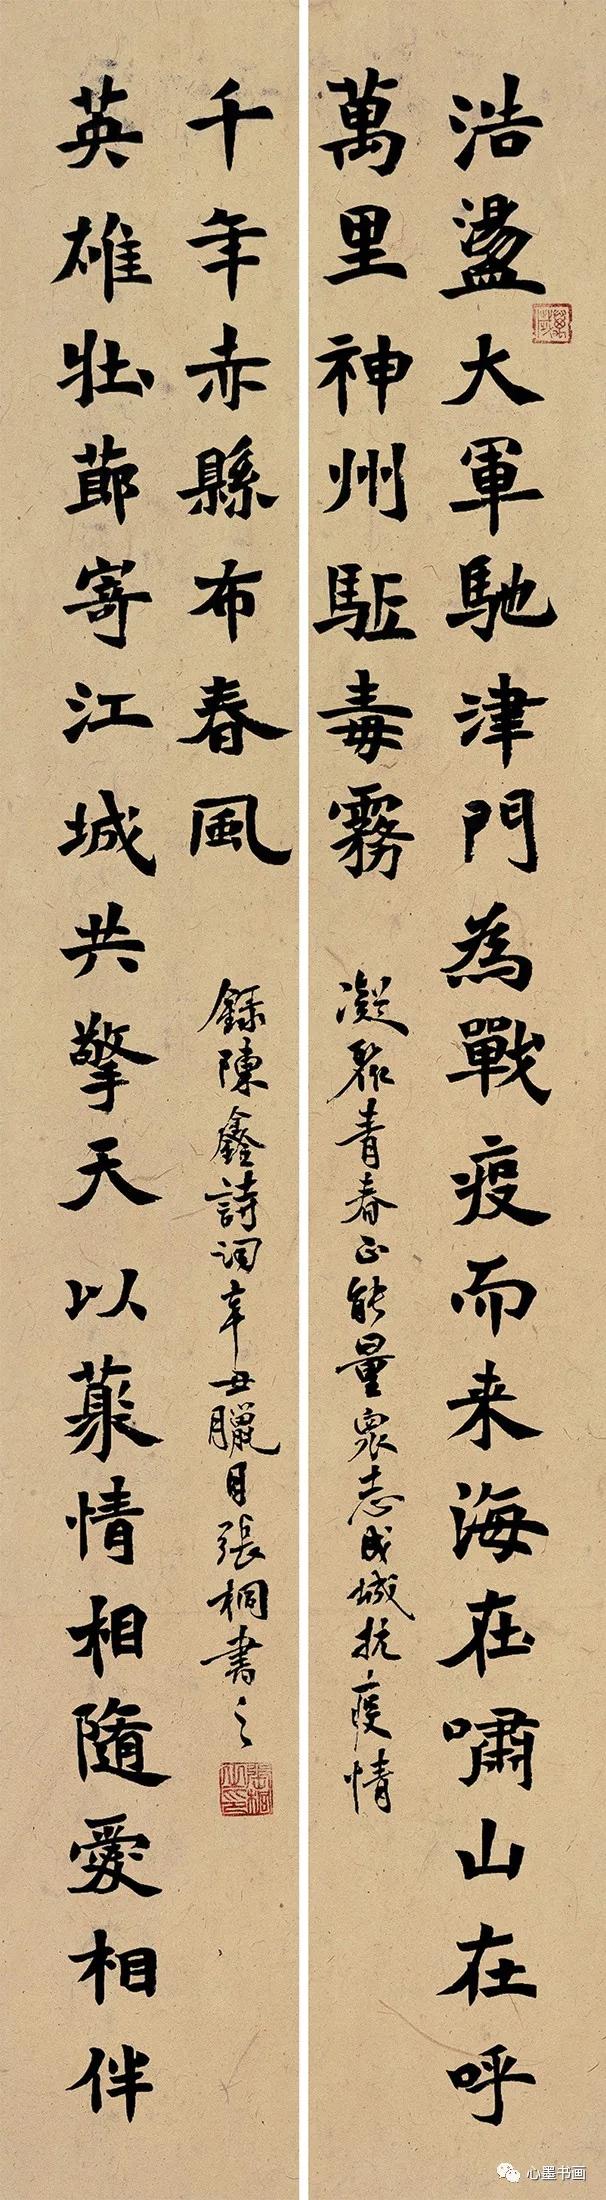 浩盪大軍馳津門為戰疫而来海在嘯山在呼
萬里神州駈毒霧
凝聚青春正能量眾志成城抗疫情
英雄壯莭寄江城共擎天以藂情相隨愛相伴
千年赤縣布春風
録陳鑫詩詞辛丑臘月張桐書之
張桐之印
心墨书画